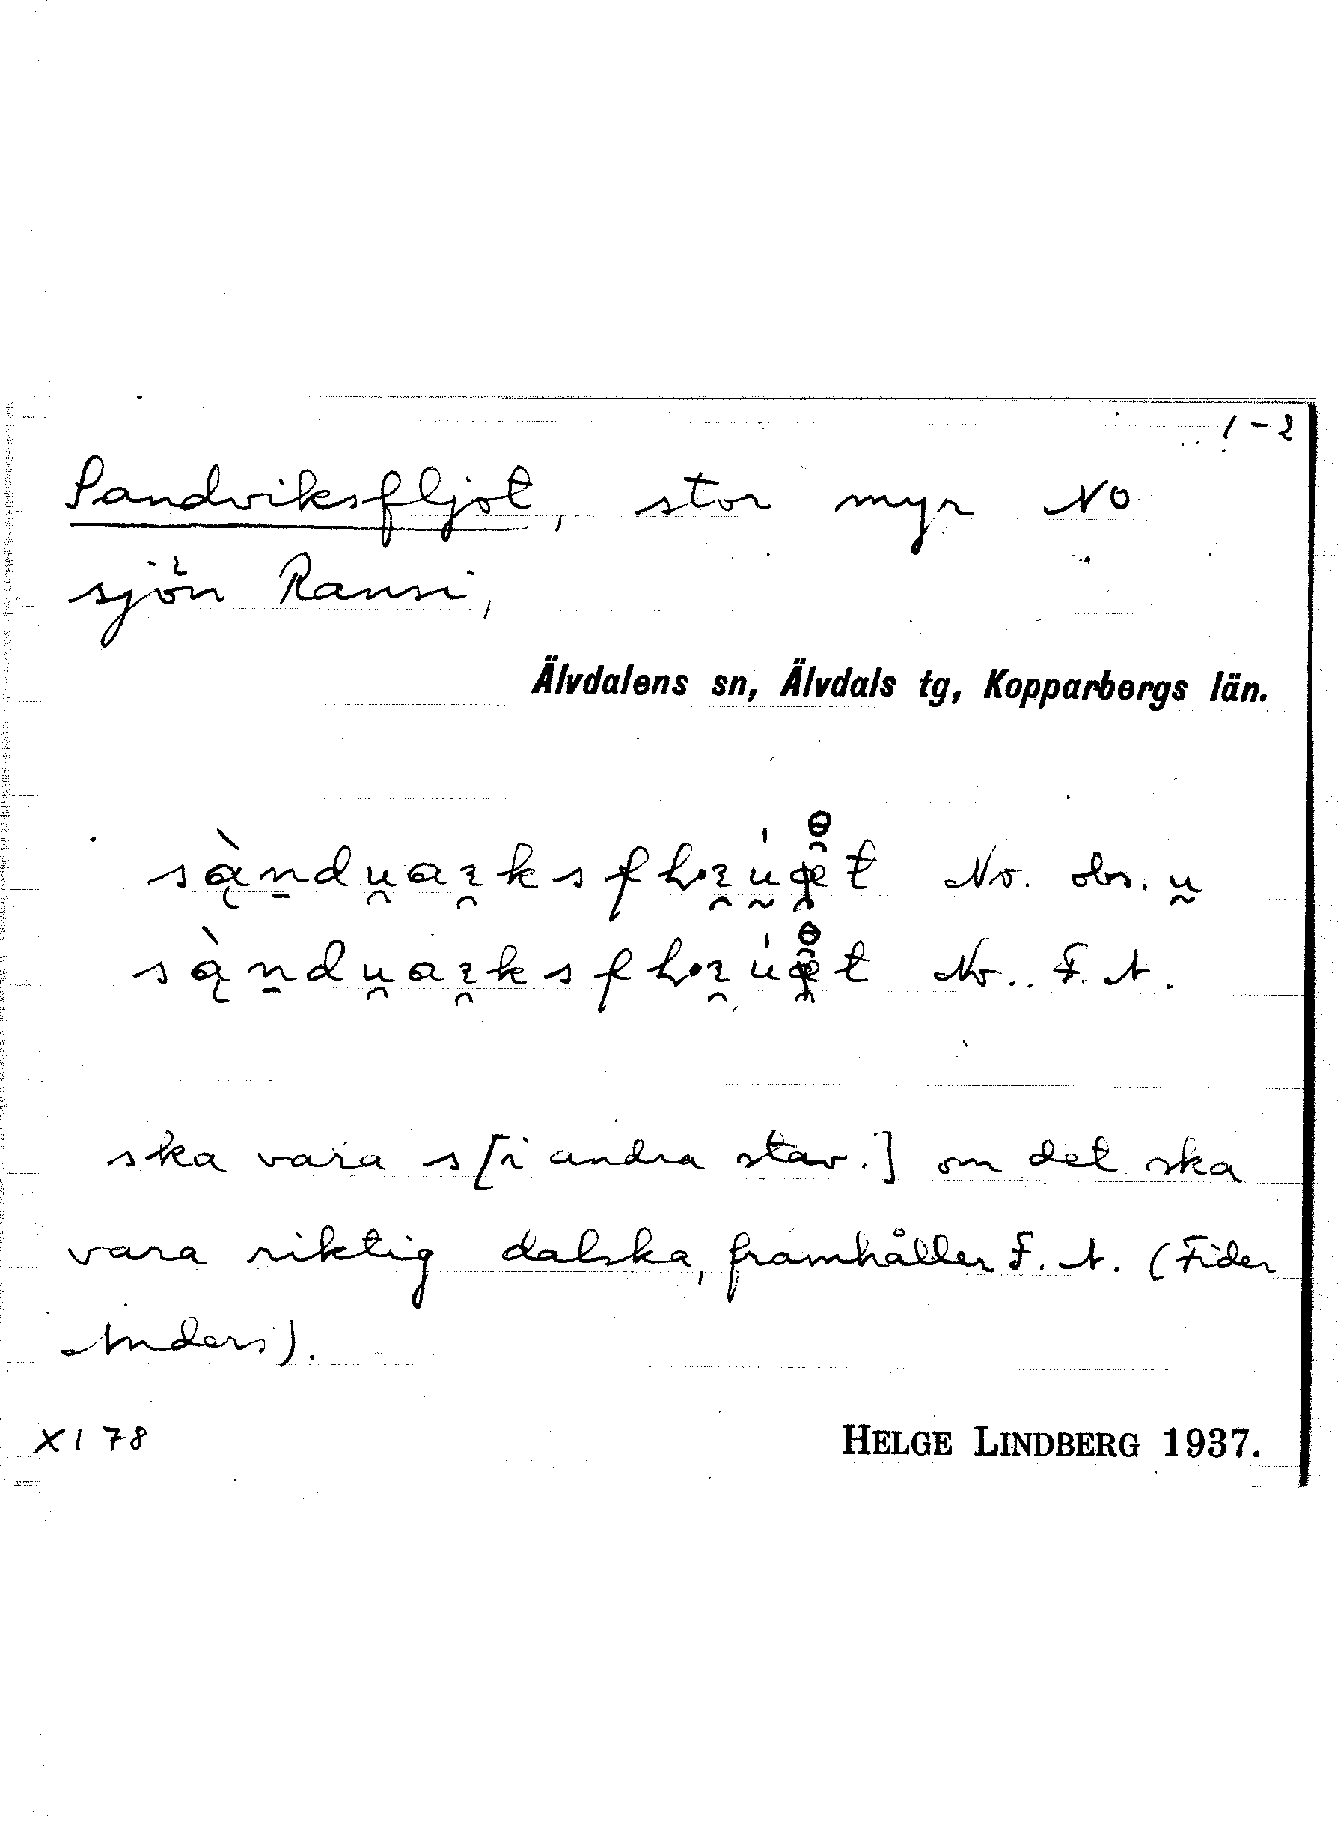 1-2
Sandviksfljot, stor myr NO
sjön Ransi,
Älvdalens sn, Älvdals tg, Kopparbergs län.
No. obs. u̯
No. F. A.
ska vara s [i andra stav.] om det ska
vara riktig dalska, framhåller F. A. (Fider
Anders).
XI 78
HELGE LINDBERG 1937.